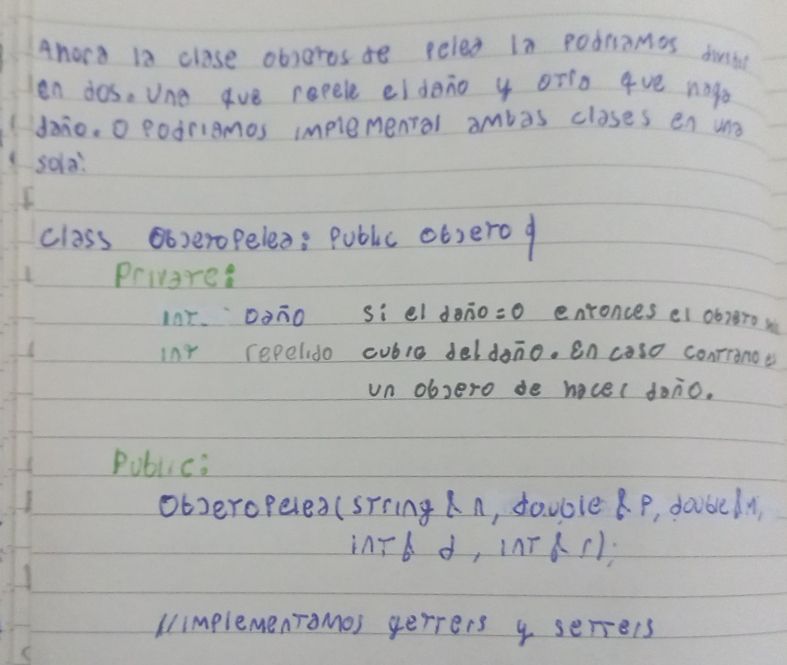 Ahora la clase objetos de pelea la podriamos dividir
en dos. Una que repele el daño y otro que haga
daño. O podriamos implemental ambas clases en una
sola:
class ObjetoPelea: Public objeto {
Private:
int Daño si el daño=0 entonces el objeto
int repelido cubre del daño. En caso contrario es
un objeto de hacer daño.
Public:
ObjetoPelea(string & n, double & p, double & m,
int & d, int & r);
//implementamos getters y setters